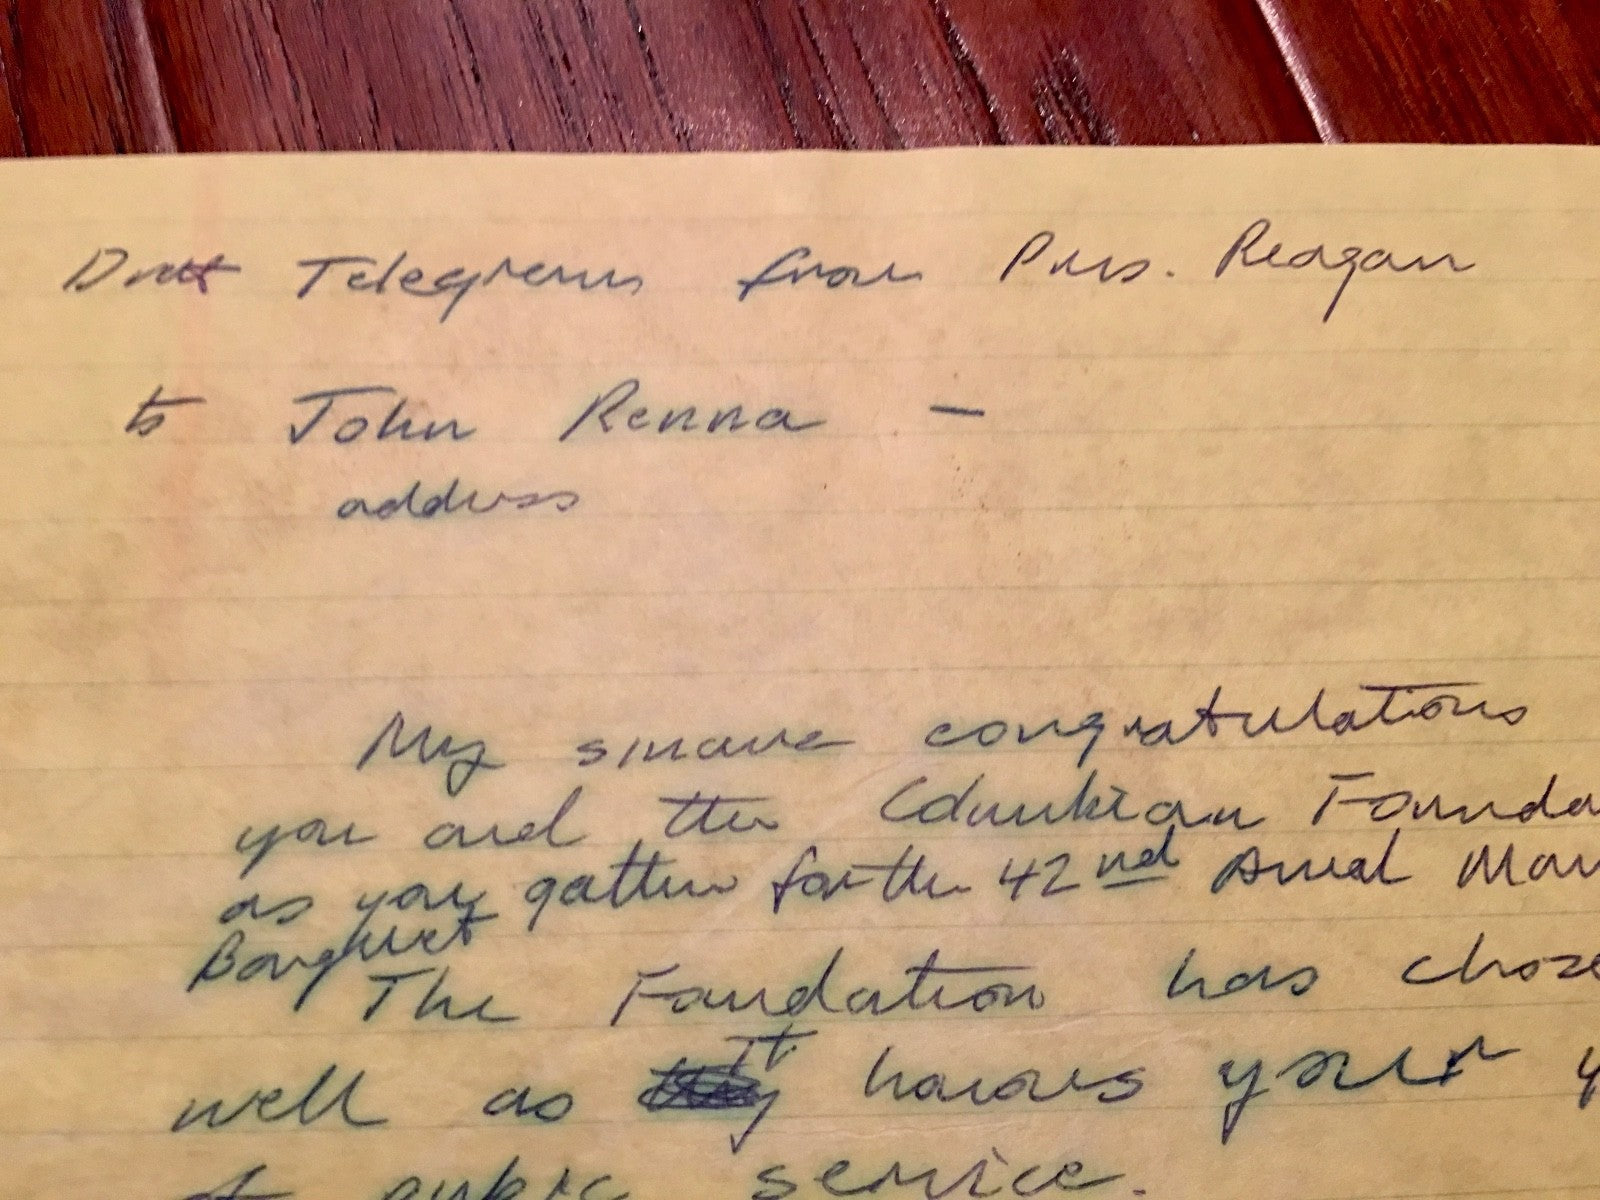 Draft Telegram from Pres. Reagan
to John Renna —
address
My sincere congratulations
you and the Columbian Founda
as you gather for the 42nd Annual
Banquet
The Foundation has chose
well as It honors your y
of public service.